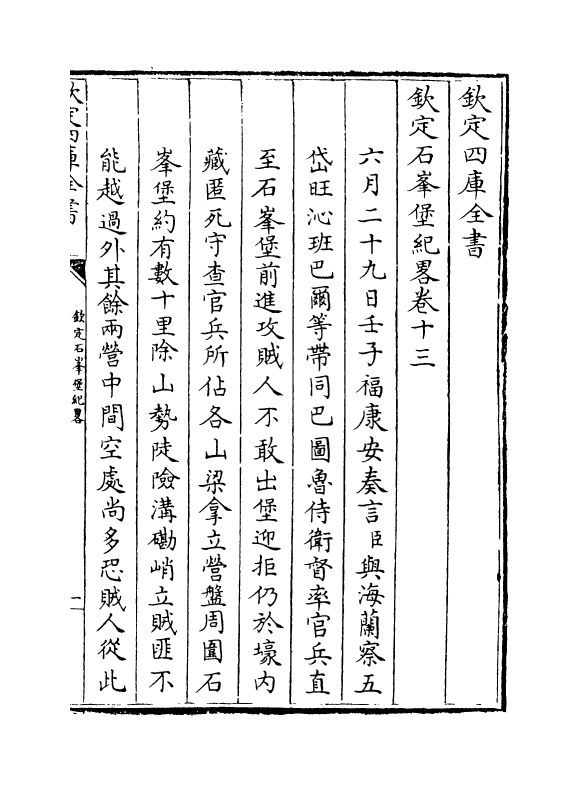 欽定四庫全書
欽定石峯堡紀畧卷十三
六月二十九日壬子福康安奏言臣與海蘭察五
岱旺沁班巴爾等帶同巴圖魯侍衛督率官兵直
至石峯堡前進攻賊人不敢出堡迎拒仍於壕内
藏匿死守查官兵所佔各山梁拿立營盤周圍石
峯堡約有數十里除山勢陡險溝磡峭立賊匪不
能越過外其餘兩營中間空處尚多恐賊人從此
欽定四庫全書
欽定石峯堡紀畧
一